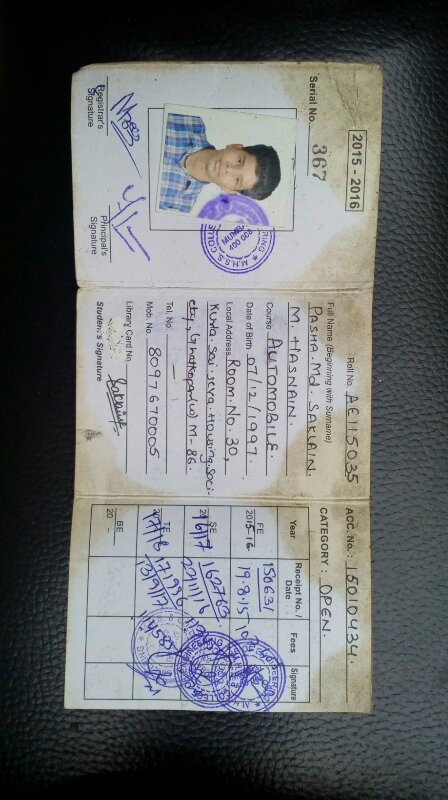 2015 - 2016
Serial No. 367
M.H.S.S. COLLE
RING
MUMBAI
400 008
Registrar's
Signature
Principal's
Signature
Roll No. AE115035
Full Name (Beginning with Surname)
PASHA. Md. SAKLAIN.
M. HASNAIN.
Course AUTOMOBILE.
Date of Birth 07/12/1997.
Local Address Room. No. 30,
Kurla. Sai. seva. Housing. Soci.
M-86.
Tel. No. —
Mob. No. 8097670005
Library Card No.
Student's Signature
ACC. No.: 15010434.
CATEGORY : OPEN.
Year Receipt No. / Date Fees Signature
FE 2015-16 150631 19.8.15
SE 16/17 162763 22/11/16
TE 17/18 171996 13/9/17
BE 20 -